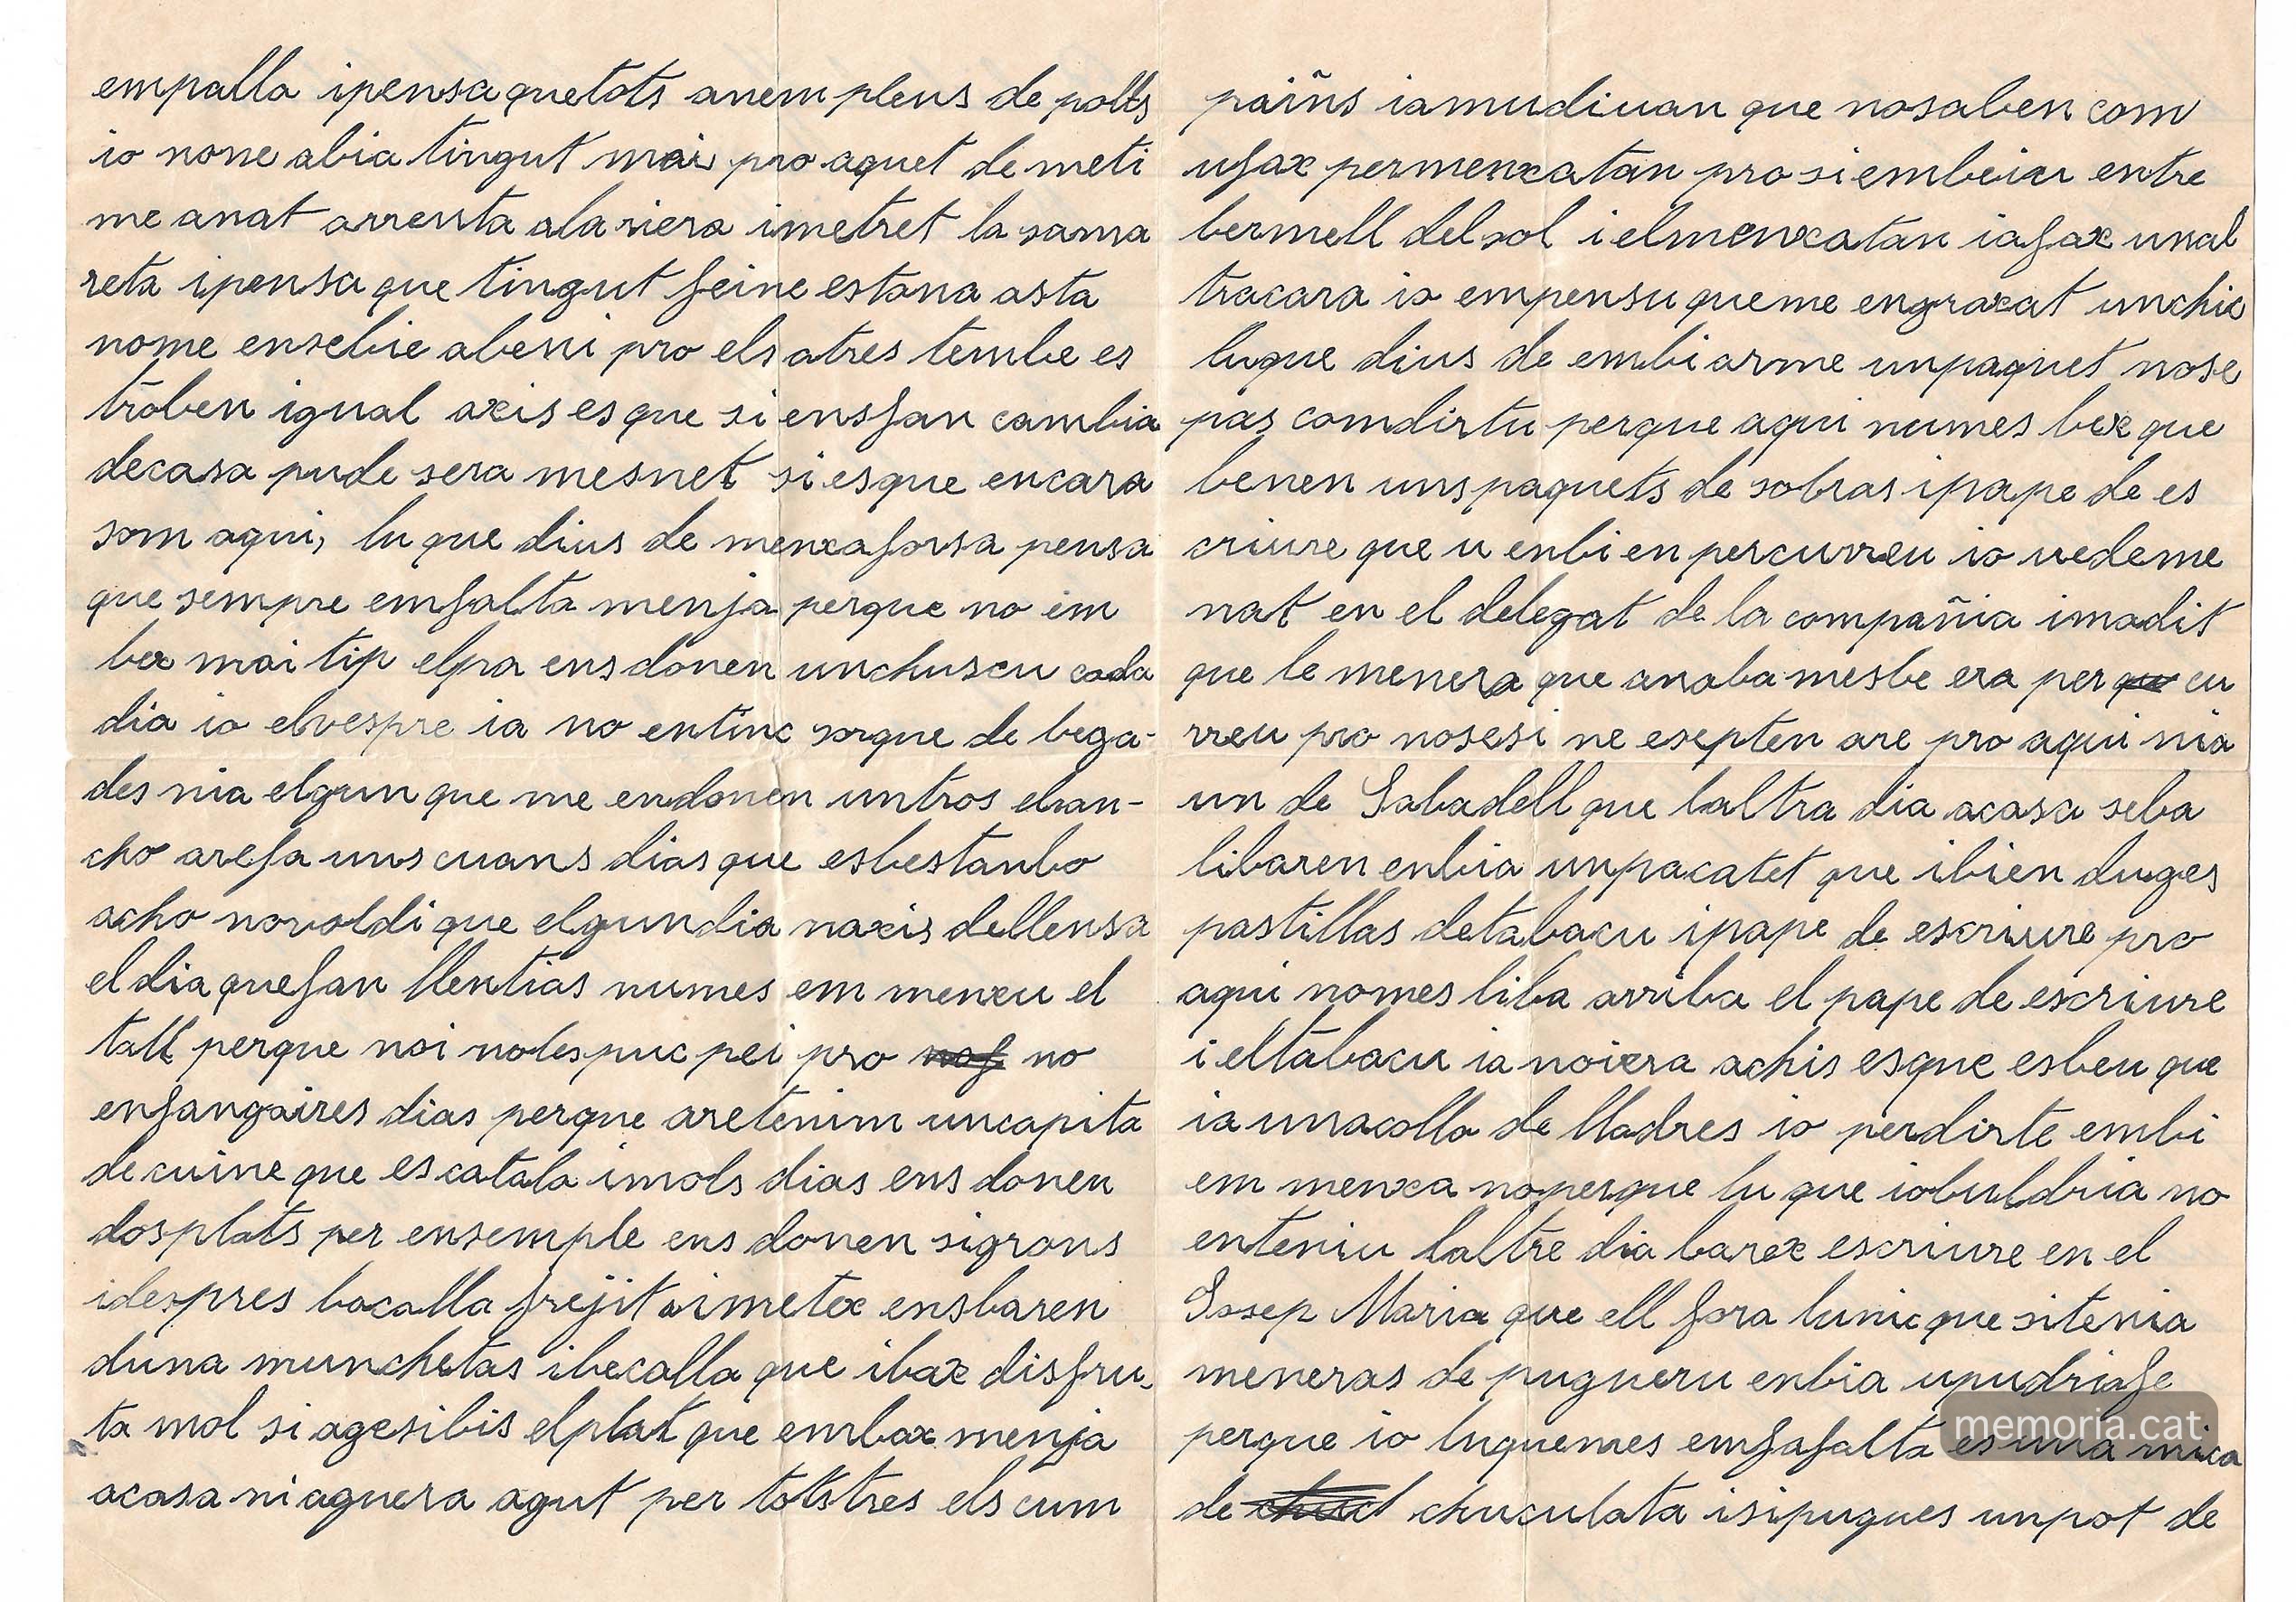 empalla ipensa quetots anem plens de polls
io none abia tingut mai pro aquet de meti
me anat arrenta ala riera imetret la sama
reta ipensa que tingut feine estona asta
nome ensebie abeni pro els atres tembe es
troben igual axis es que si ensfan cambia
decasa pude sera mesnet si esque encara
som aqui, lu que dius de menxaforsa pensa
que sempre emfalta menja perque no em
bex mai tip elpa ens donen unchuscu cada
dia io elvespre ia no entinc sorque de bega-
des nia elgun que me endonen untros elran-
cho arefa uns cuans dias que esbestanbo
acho novoldi que elgundia naxis dellensa
el dia quefan llentias numes em menxu el
tall perque noi noles puc pei pro nof no
enfangaires dias perque aretenim uncapita
de cuine que es catala imols dias ens donen
dosplats per ensemple ens donen sigrons
idespres bacalla frejit aimetex ensbaren
duna munchetas ibecalla que ibax disfru-
ta mol si agesibis elplat que embax menja
acasa ni aguera agut per totstres els cum
paiñs iamudiuan que nosaben com
ufax permenxatan pro si embeiu entre
bermell delsol i elmenxatan iafax unal
tracara io empensu queme engraxat unchic
luque dius de embiarme unpaquet nose
pas comdirtu perque aqui numes bex que
benen uns paquets de sobras ipape de es
criure que u enbien percurreu io uedeme
nat en el delegat de la compañia imadit
que le menera que anaba mesbe era per que cu
rreu pro nosesi ne esepten are pro aqui nia
un de Sabadell que laltra dia acasa seba
libaren enbia unpacatet que ibien duges
pastillas detabacu ipape de escriure pro
aqui nomes liba arriba el pape de escriure
i eltabacu ia noiera achis esque esbeu que
ia unacolla de lladres io perdirte embi
em menxa noperque lu que iobuldria no
enteniu laltre dia barex escriure en el
Josep Maria que ell fora lunic que sitenia
meneras de pugueru enbia upudriafe
perque io luquemes emfafalta es una mica
de chucl chuculata isipugues unpot de
memoria.cat